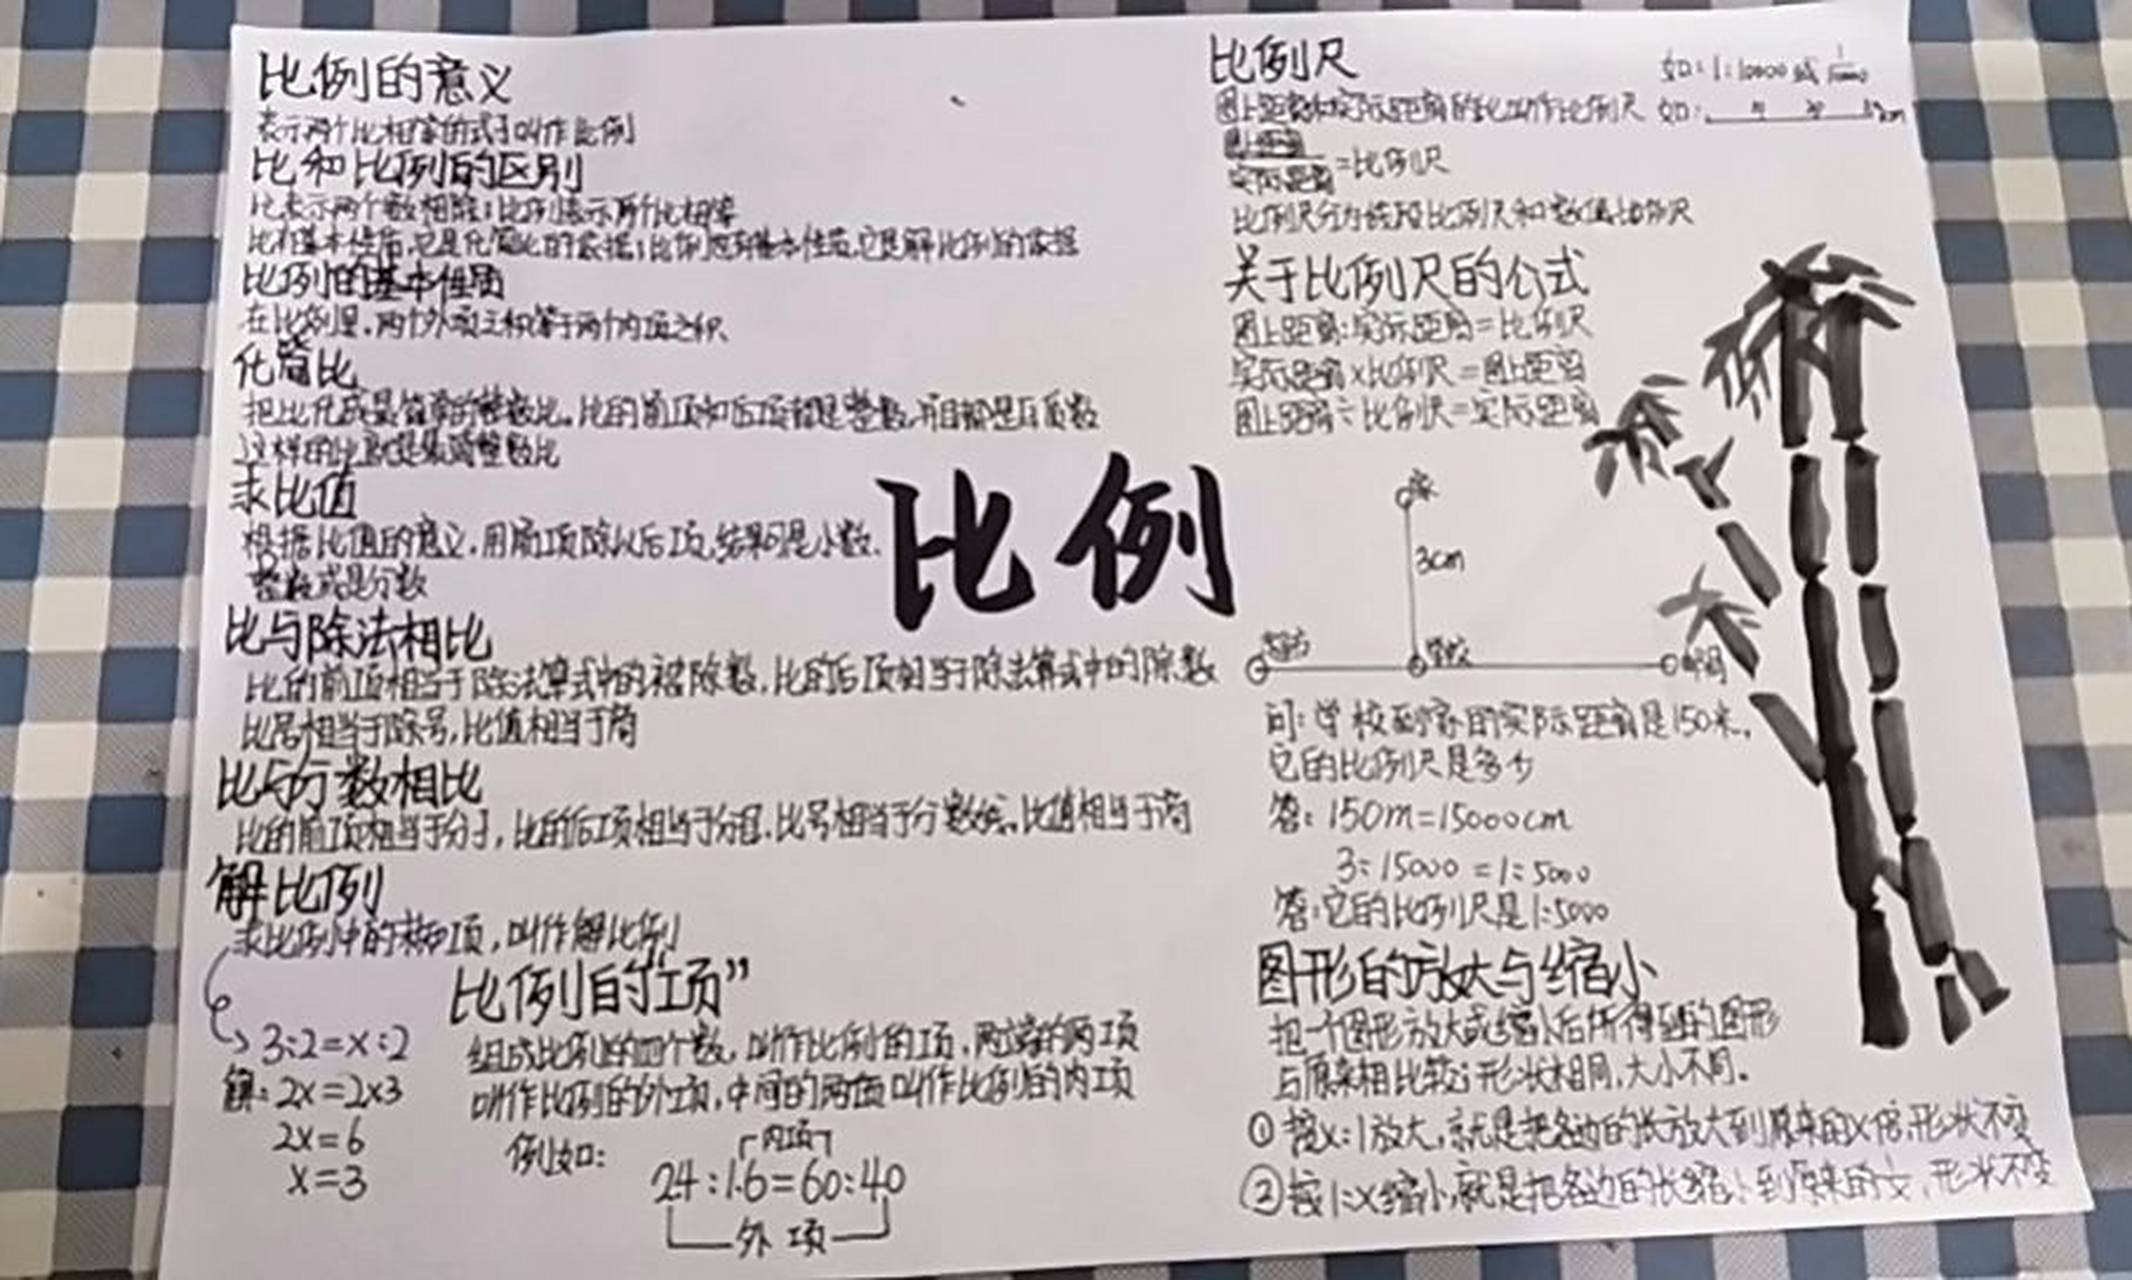 比例的意义
表示两个比相等的式子叫作比例
比和比例的区别
比表示两个数相除；比例表示两个比相等
比有基本性质,它是化简比的依据；比例也有基本性质,它是解比例的依据
比例的基本性质
在比例里,两个外项之积等于两个内项之积
化简比
把比化成最简单的整数比。比的前项和后项都是整数,而且都是互质数
这样的比就是最简整数比
求比值
根据比值的意义,用前项除以后项,结果可是小数、
整数或是分数
比与除法相比
比的前项相当于除法算式中的被除数,比的后项相当于除法算式中的除数
比号相当于除号,比值相当于商
比与分数相比
比的前项相当于分子,比的后项相当于分母,比号相当于分数线,比值相当于商
解比例
求比例中的未知项,叫作解比例
3:2=x:2
解:2x=2x3
2x=6
x=3
比例的“项”
组成比例的四个数,叫作比例的项,两端的两项
叫作比例的外项,中间的两项叫作比例的内项
例如:
内项
2.4:1.6=60:40
外项
比例
比例尺
如:1:10000或
图上距离和实际距离的比叫作比例尺
如:
km
图上距离
实际距离
=比例尺
比例尺分为线段比例尺和数值比例尺
关于比例尺的公式
图上距离:实际距离=比例尺
实际距离x比例尺=图上距离
图上距离÷比例尺=实际距离
家
3cm
学校
问:学校到家的实际距离是150米,
它的比例尺是多少
答:150m=15000cm
3:15000=1:5000
答:它的比例尺是1:5000
图形的放大与缩小
把一个图形放大或缩小后所得到的图形
与原来相比较:形状相同,大小不同。
①按x:1放大,就是把各边的长放大到原来的x倍,形状不变
②按1:x缩小,就是把各边的长缩小到原来的,形状不变